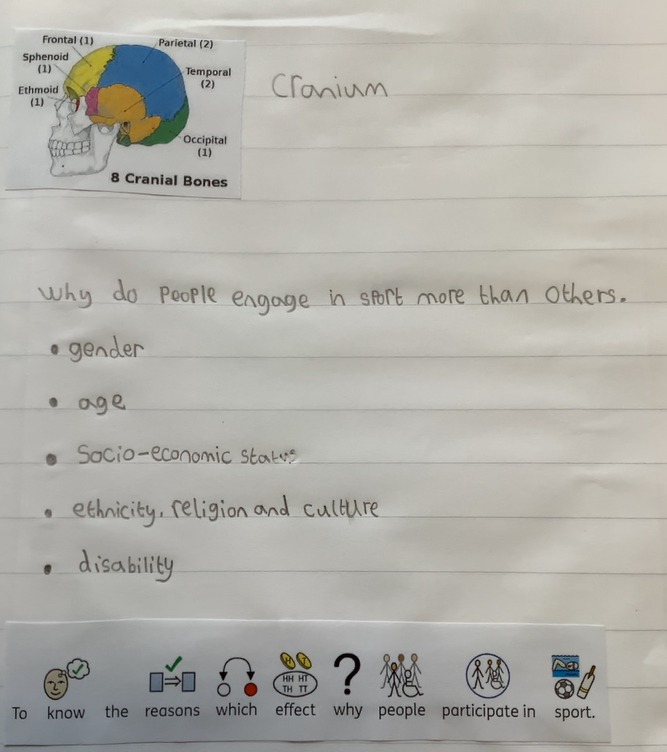 Frontal (1)
Parietal (2)
Sphenoid
(1)
Temporal
(2)
Ethmoid
(1)
Occipital
(1)
8 Cranial Bones
Cranium
why do people engage in sport more than others.
• gender
• age
• Socio-economic status
• ethnicity, religion and culture
• disability
HH HT
TH TT
?
To know the reasons which effect why people participate in sport.